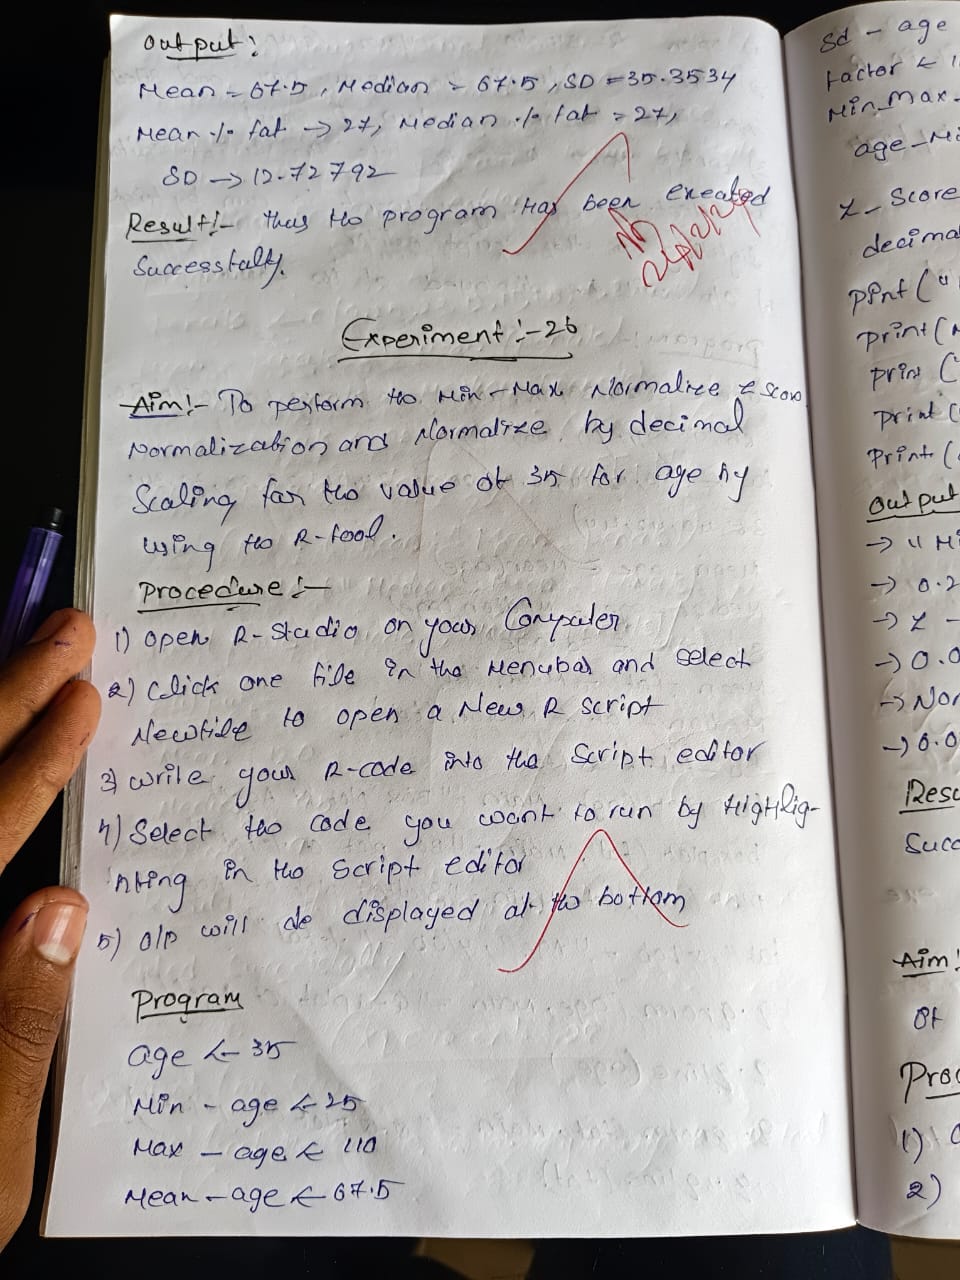 Output:
Mean = 67.5, Median = 67.5, SD = 35.3534
Mean % fat → 27, Median % fat = 27,
SD → 12.72792
Result:- thus the program has been executed
Successfully.
Experiment :- 26
Aim:- To perform the Min-Max Normalize z scor
Normalization and Normalize by decimal
Scaling for the value of 35 for age by
using the R-tool.
Procedure :-
1) open R-Studio on your Computer
2) Click one file in the Menubar and select
Newfile to open a New R script
3) write your R-code into the Script editor
4) Select the code you want to run by Highlig-
hting in the Script editor
5) O/P will de displayed at the bottom
Program
age ← 35
Min - age ← 25
Max - age ← 110
Mean - age ← 67.5
Sd - age
factor ← 1
Min_Max -
age - Mi
Z_ Score
decima
print ("
print (
print ("
print (
Print (
Output
→ " Mi
→ 0.2
→ Z -
→ 0.0
→ Nor
→ 0.0
Resu
Succ
Aim :
Of
Proc
1)
2)